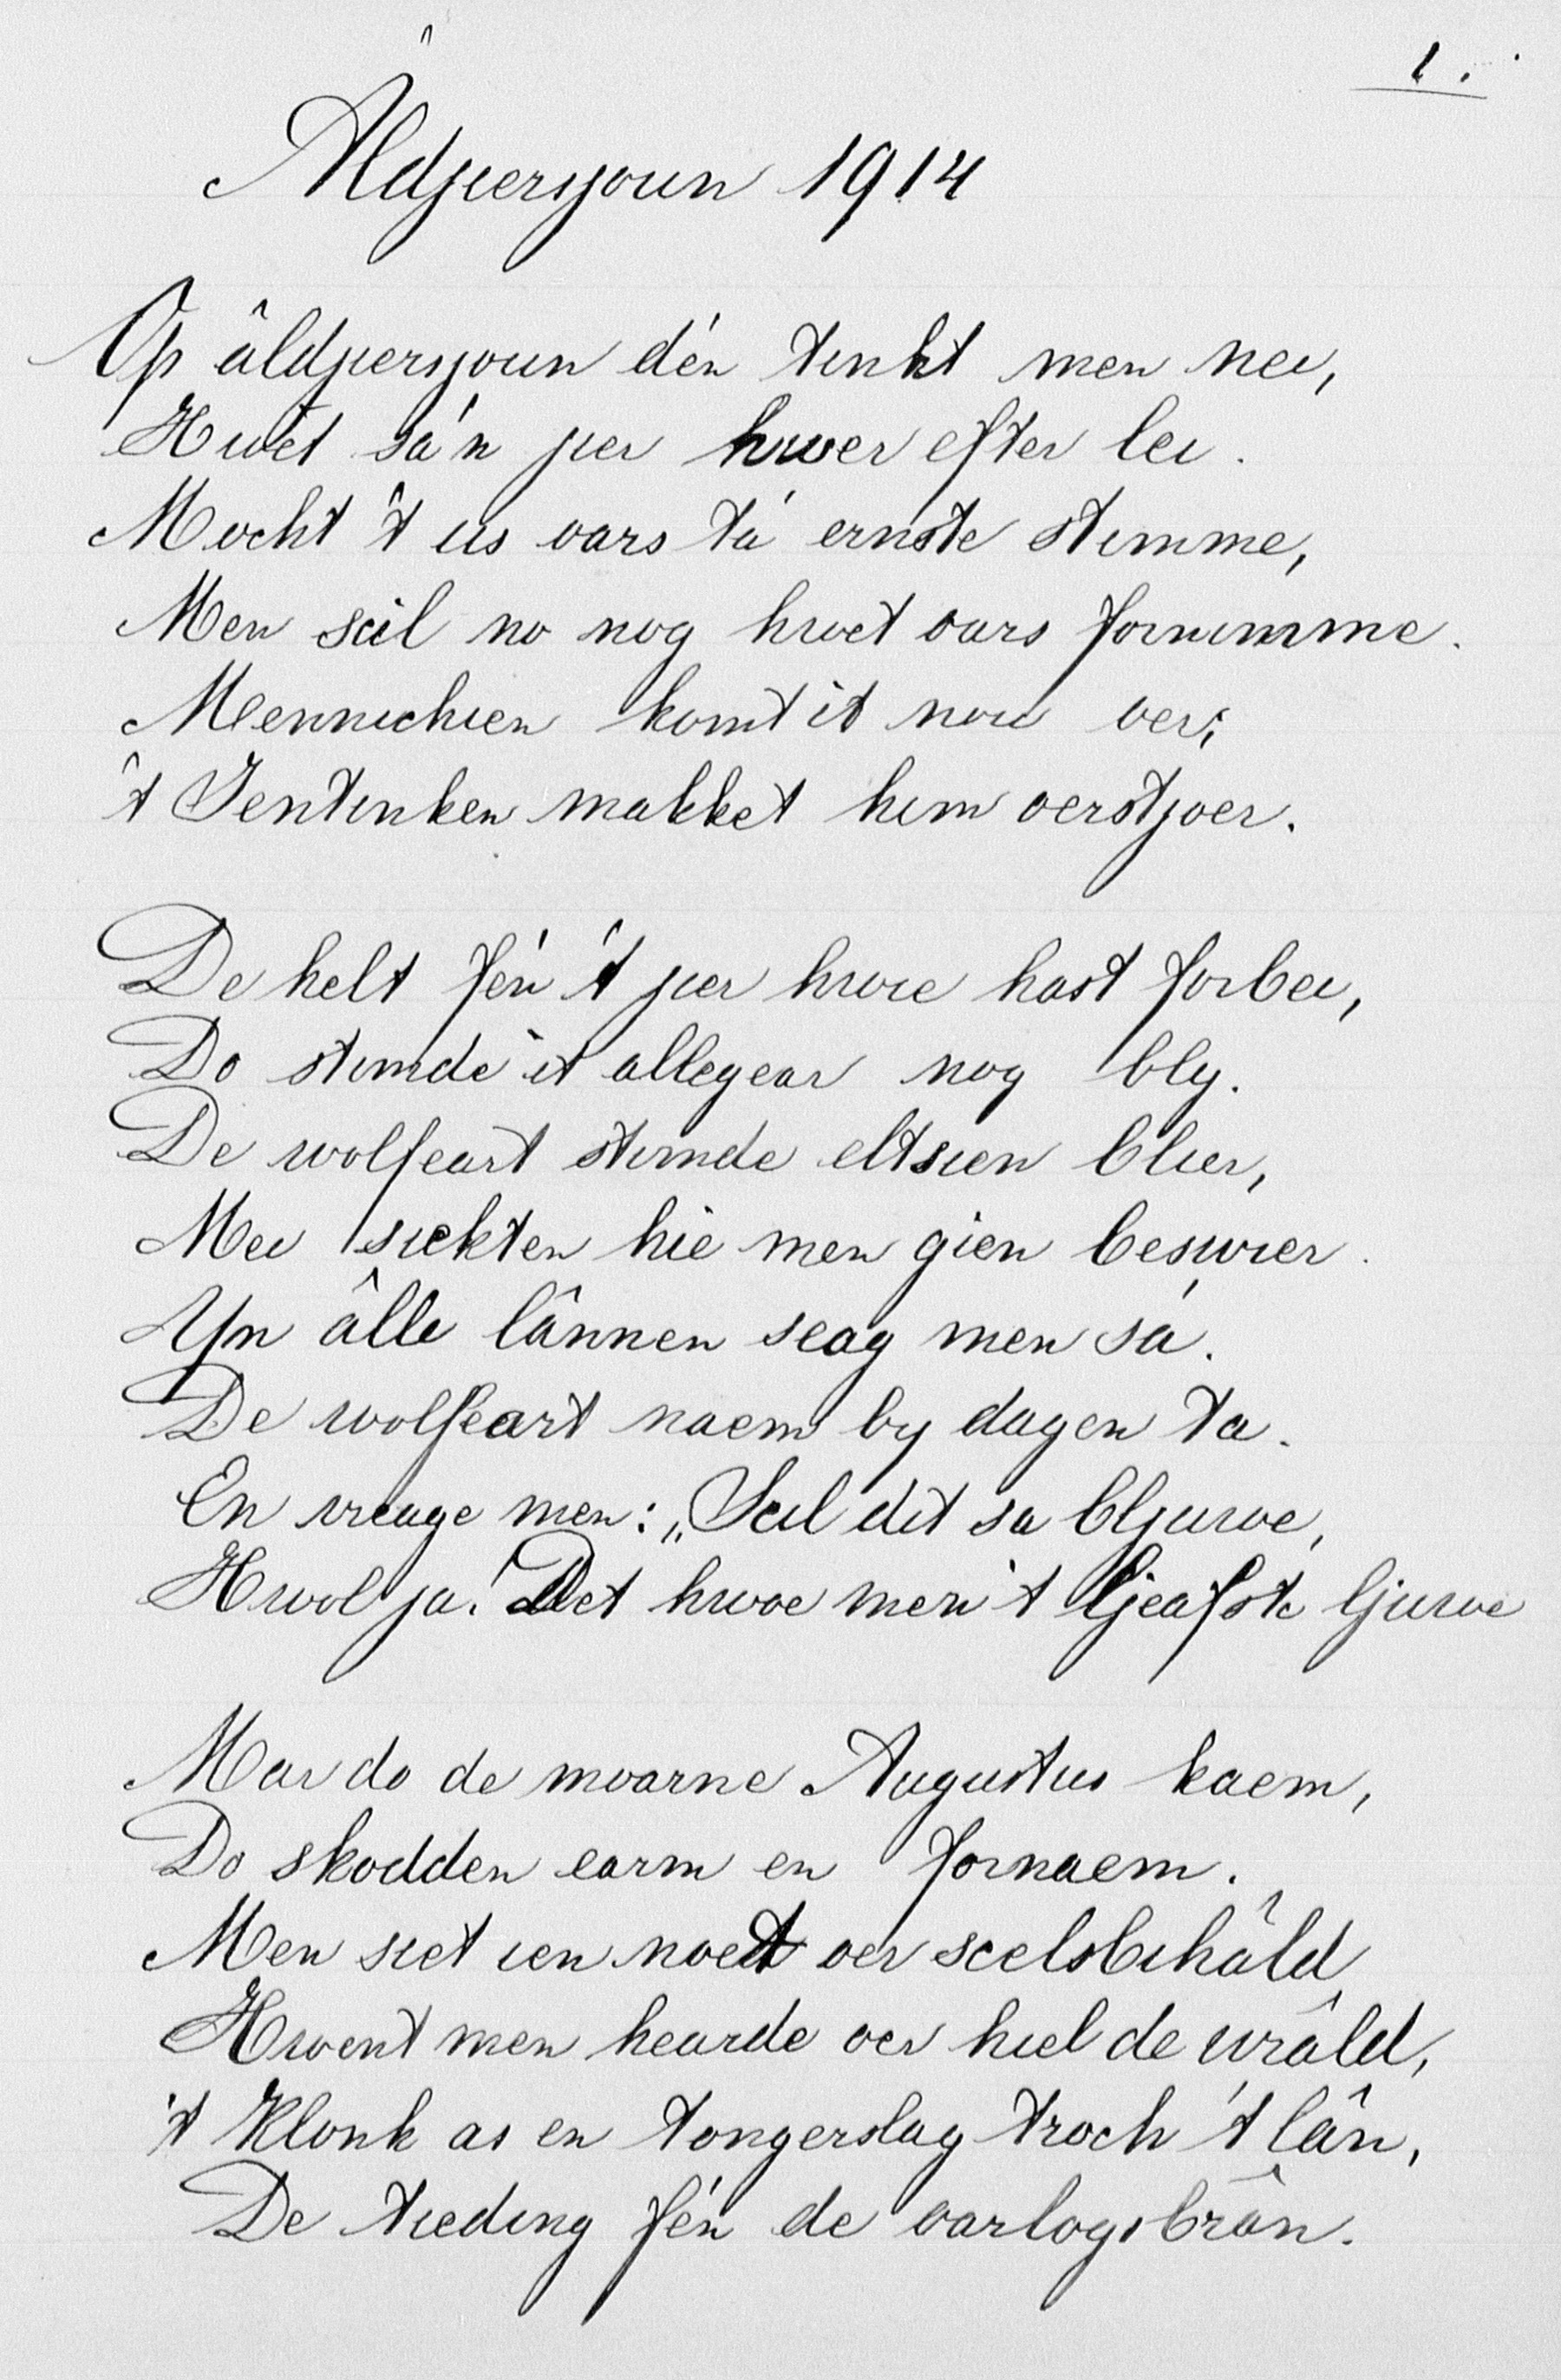 1.
Âldjiersjoun 1914
Op âldjiersjoun dén tinkt men nei,
Hwet sa'n jier hwer efter lei.
Mocht 't us oars ta ernste stimme,
Men scil no nog hwet oars fornimme.
Mennichien komt it nou oer,
't Ientinken makket him oerstjoer.
De helt fén 't jier hwie hast forbei,
Do stimde it allegear nog bly.
De wolfeart stimde eltsien blier,
Mei siekten hie men gien beswier.
Yn âlle lânnen seag men sa.
De wolfeart naem by dagen ta.
En vreage men: „Scil dit sa bljuwe,
Hwol ja! Det hwoe men 't ljeafste ljuwe
Mar do de moarne Augustus kaem,
Do skodden earm en fornaem.
Men siet ien noed oer scelsbihâld
Hwent men hearde oer hiel de wrâld,
't Klonk as en tongerslag troch 't lân,
De tieding fén de oarlogsbrân.